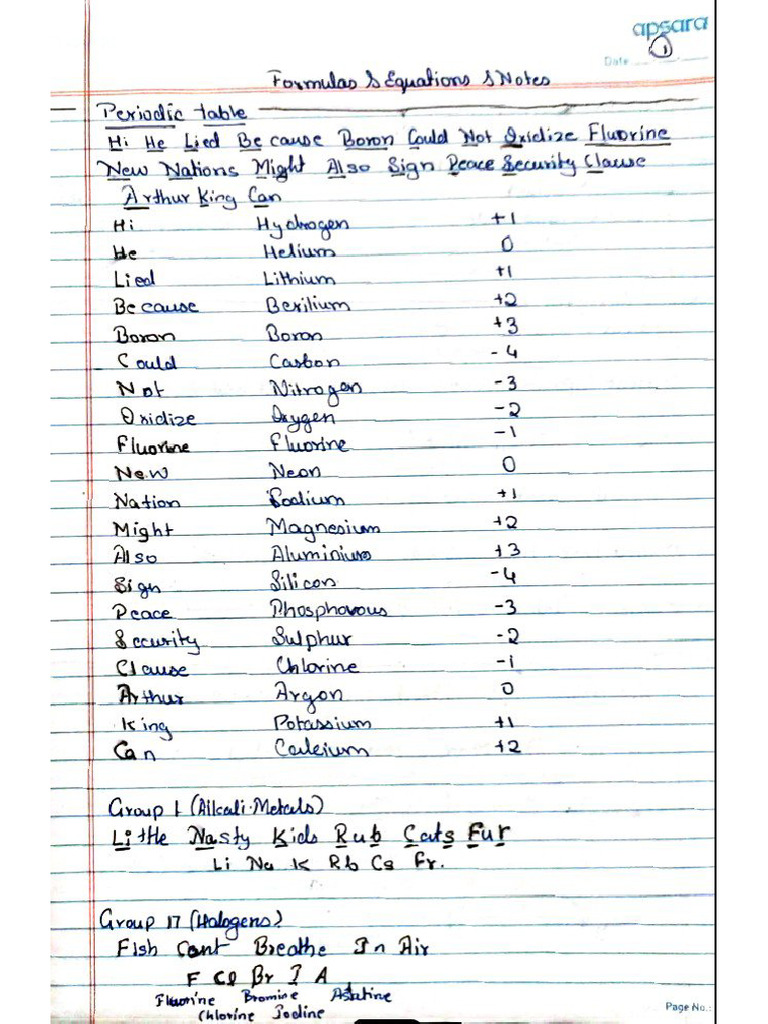 apsara
1
Date
Formulas & Equations & Notes
Periodic table
Hi He Lied Because Boron Could Not Oxidize Fluorine
New Nations Might Also Sign Peace Security Clause
Arthur King Can
Hi Hydrogen +1
He Helium 0
Lied Lithium +1
Because Berilium +2
Boron Boron +3
Could Carbon -4
Not Nitrogen -3
Oxidize Oxygen -2
Fluorine Fluorine -1
New Neon 0
Nation Sodium +1
Might Magnesium +2
Also Aluminium +3
Sign Silicon -4
Peace Phosphorous -3
Security Sulphur -2
Clause Chlorine -1
Arthur Argon 0
King Potassium +1
Can Calcium +2
Group 1 (Alkali Metals)
Little Nasty Kids Rub Cats Fur
Li Na K Rb Cs Fr.
Group 17 (Halogens)
Fish Cant Breathe In Air
F Cl Br I A
Fluorine Bromine Astatine
Chlorine Iodine
Page No.: